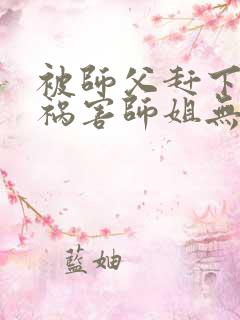 被師父赶下
祸害師姐無
藍妯